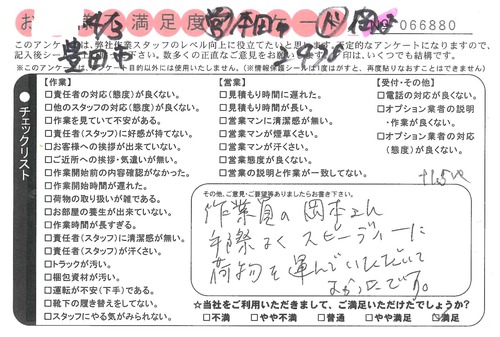 お 満足度 ケート 066880
4/3 営 本田 ド 岡本
豊田中
このアンケートは、弊社作業スタッフのレベル向上に役立てたいと思います。否定的なアンケートになりますので、
記入後シール 数多くの正直なご意見をお願い 印は、いくつでも結構です。
※このアンケート アンケート目的以外には使用いたしません。(※情報保護シールは1度はがすと、再度貼りなおすことはできません)
チェックリスト
【作業】
□責任者の対応(態度)が良くない。
□他のスタッフの対応(態度)が良くない。
□作業を見ていて不安がある。
□責任者(スタッフ)に好感が持てない。
□お客様への挨拶が出来ていない。
□ご近所への挨拶・気遣いが無い。
□作業開始前の内容確認がなかった。
□作業開始時間が遅れた。
□荷物の取り扱いが雑である。
□お部屋の養生が出来ていない。
□作業時間が長すぎる。
□責任者(スタッフ)に清潔感が無い。
□責任者(スタッフ)が汗さい。
□トラックが汚い。
□梱包資材が汚い。
□運転が不安(下手)である。
□靴下の履き替えをしてない。
□スタッフにやる気がみられない。
【営業】
□見積もり時間に遅れた。
□見積もり時間が長い。
□営業マンに清潔感が無い。
□営業マンが煙草くさい。
□営業マンが汗さい。
□営業態度が良くない。
□営業の説明と作業が一致してない。
【受付・その他】
□電話の対応が良くない。
□オプション業者の説明
・作業が良くない。
□オプション業者の対応
(態度)が良くない。
その他、ご意見・ご要望等ありましたらお書き下さい。
作業員の岡本さん
手際よくスピーディーに
荷物を運んでいただいて
よかったです。
☆当社をご利用いただきまして、ご満足いただけたでしょうか?
□不満 □やや不満 □普通 □やや満足 ☑満足